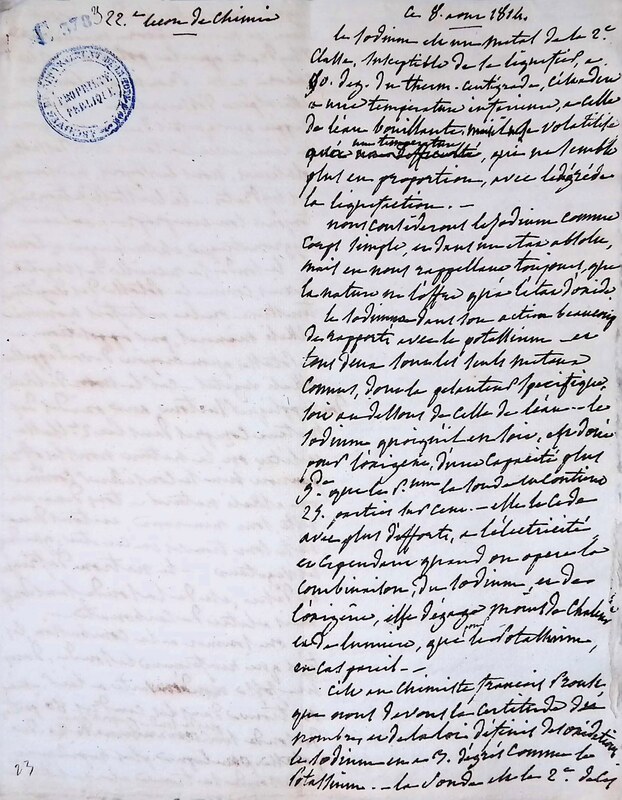 E 3703
22.e Lecon de Chimie
ce 8. aout 1814.
ARCHIVES
PROPRIÉTÉ
PUBLIQUE
le sodium est un metal de la 2.e
Classe, susceptible de se liquefier, a
90. deg. du therm. centigrade, c'est a dire
a une temperature inferieure, a celle
de l'eau bouillante, mais il se volatilise
qu'a une temperature, qui ne semble
plus en proportion, avec le degré de
la liquefaction. —
nous considerons le sodium comme
corps simple, et dans un etat absolu,
mais en nous rappellant toujours, que
la nature ne l'offre qu'a l'etat d'oxide.
le sodium a dans son action beaucoup
de rapports avec le potassium — et
tous deux sont les seuls metaux
connus, dont la pesanteur specifique,
soit au dessous de celle de l'eau — le
sodium quoiqu'il en soit, est doué
pour l'oxigène, d'une capacité plus
g.de que le P.ium la soude en contient
25. parties sur cent. — elle le cede
avec plus d'efforts, a l'électricité
et cependant quand on opere la
combinaison, du sodium, et de
l'oxigène, il se degage moins de chaleur
et de lumiere, que le Potassium,
en cas pareil. —
C'est au Chimiste françois Proust
que nous devons la certitude des
nombres, et de la loi definie des oxidations
le sodium en a 3. degrés comme le
Potassium. — la soude est le 2.e de ces
23